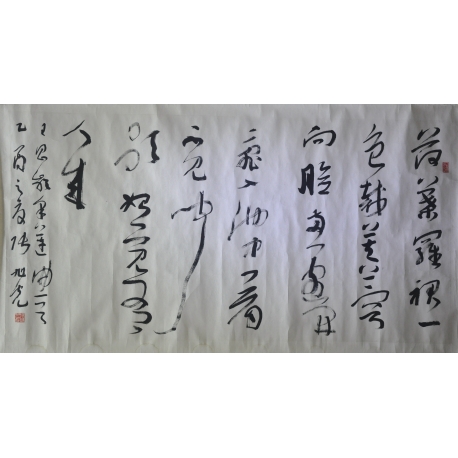 荷葉羅裙一
色裁芙蓉
向臉兩邊開
亂入池中看
不見聞
歌始覺有
人来
王昌齡采蓮曲一首
乙酉之夏張旭光